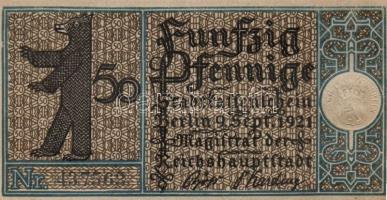 Funfzig
50 Pfennige
Stadtkassenschein
Berlin, 9. Sept. 1921
Magistrat der
Reichshauptstadt
Nr.